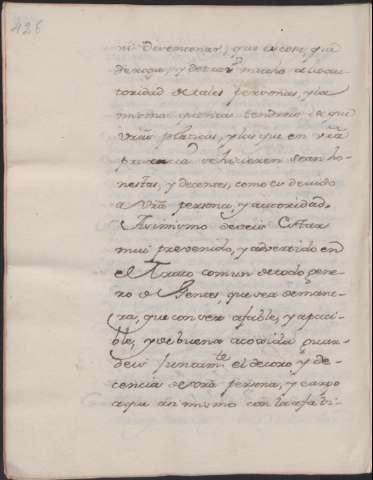 426
ni de personas, que es cosa, que
deroga, y mucho a la au-
toridad de tales personas, y la
misma quenta tendreis, en que
vras platicas, y las que en vra
presencia se hicieren sean ho-
nestas, y decentes, como es deuido
a vra persona, y autoridad.
Assimismo deveis estar
mui prevenido, y advertido en
el Trato comun de todo gene-
ro de Gentes, que sea de mane-
ra, que con ser afable, y apaci-
ble, y de buena acogida guar-
deis juntamte. el decoro, y de-
cencia de vra persona, y cargo
aqui an mismo con la afabi-